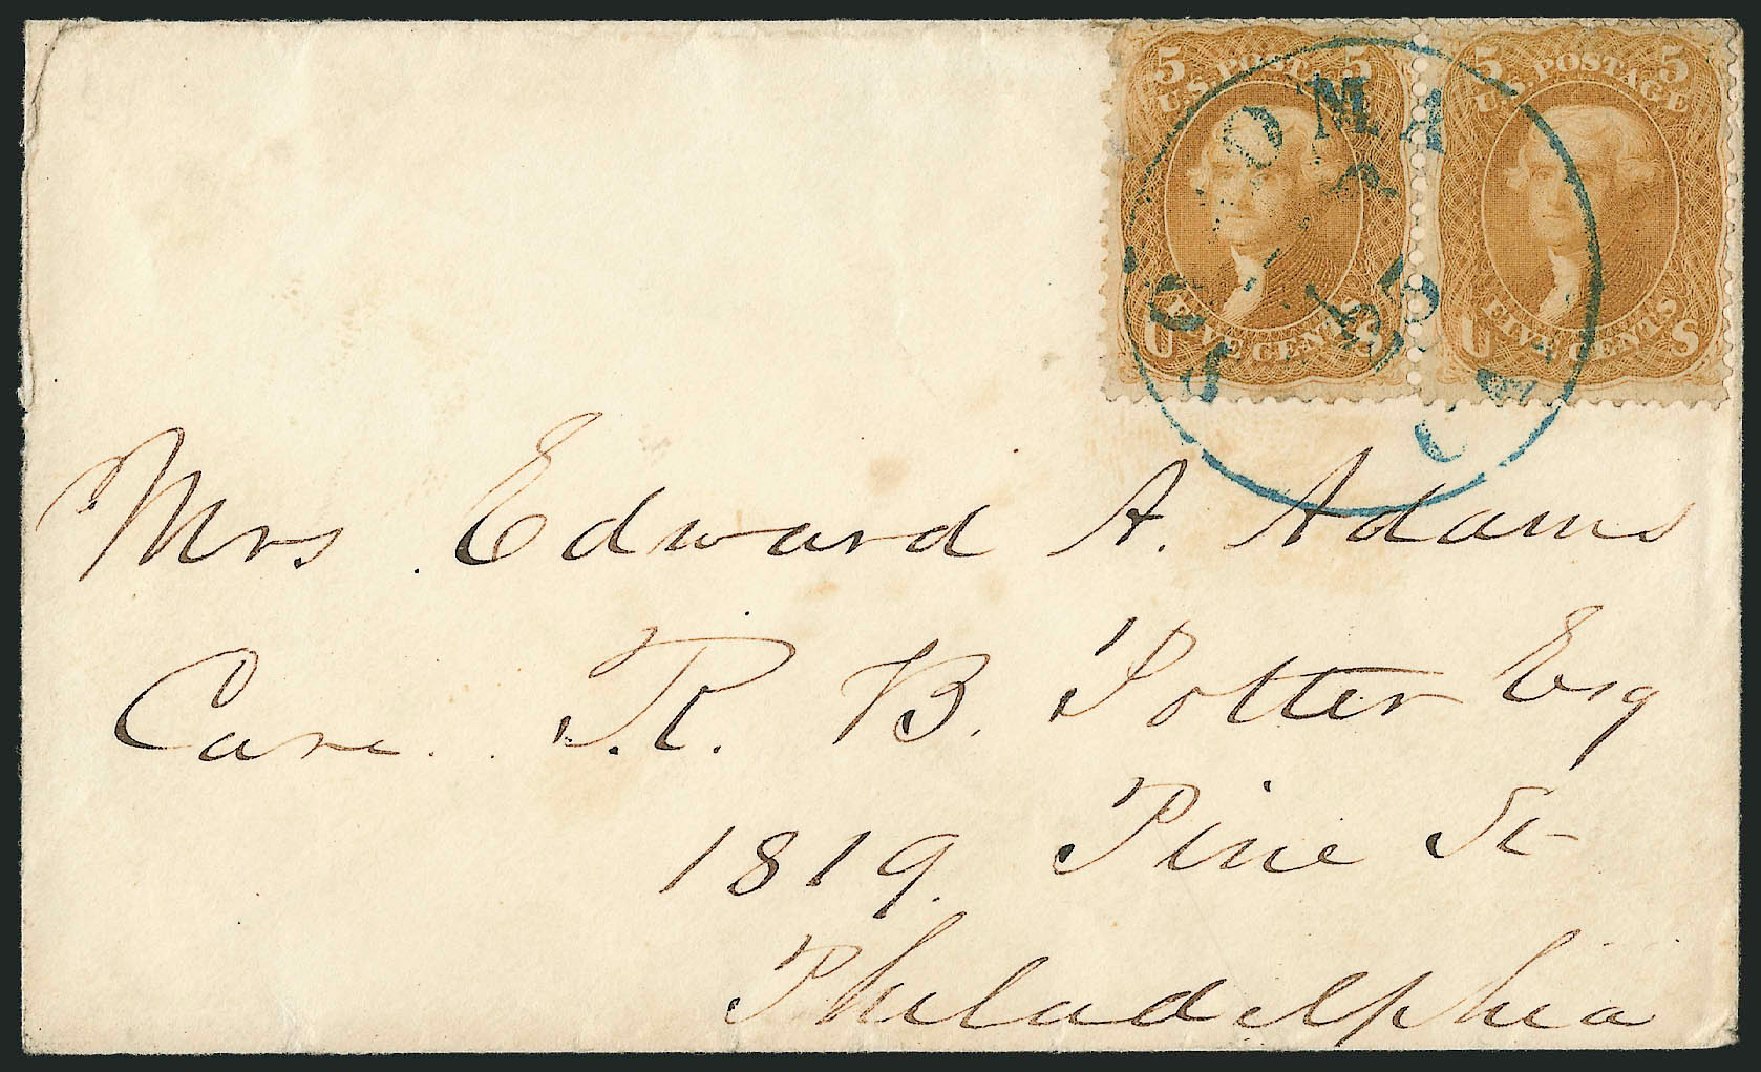 5 5
U.S. POSTAGE
FIVE CENTS
U S
5 5
U.S. POSTAGE
FIVE CENTS
U S
SONOMA
CAL
Mrs Edward A. Adams
Care R. B. Potter Esq
1819. Pine St
Philadelphia